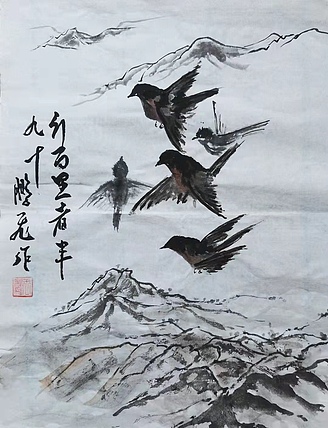 行百里者半
九十鹏飞作